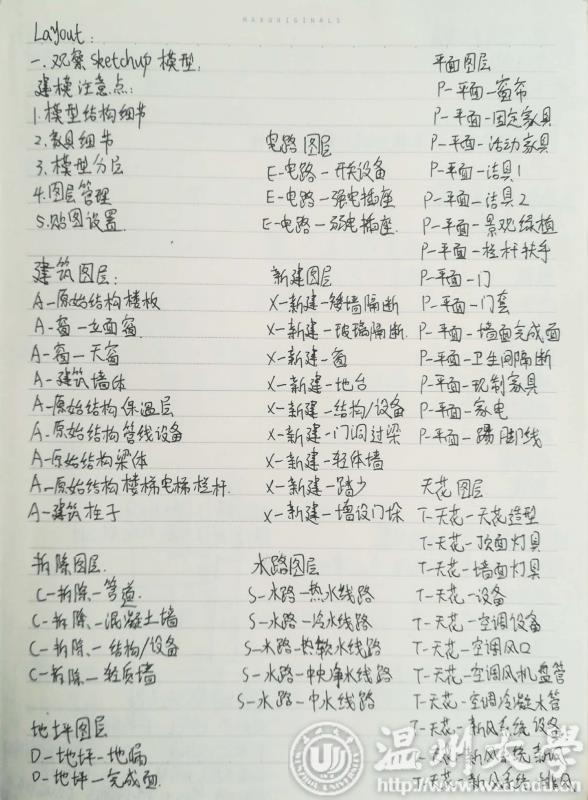 MARUORIGINALS
Layout:
一.观察sketchup模型:
建模注意点:
1.模型结构细节
2.教具细节
3.模型分层
4.图层管理
5.贴图设置
建筑图层:
A-原始结构楼板
A-窗-立面窗
A-窗-天窗
A-建筑墙体
A-原始结构保温层
A-原始结构管线设备
A-原始结构梁体
A-原始结构楼梯电梯栏杆
A-建筑柱子
拆除图层
C-拆除-管道
C-拆除-混凝土墙
C-拆除-结构/设备
C-拆除-轻质墙
地坪图层
D-地坪-地漏
D-地坪-完成面
电路图层
E-电路-开关设备
E-电路-强电插座
E-电路-弱电插座
新建图层
X-新建-矮墙隔断
X-新建-玻璃隔断
X-新建-窗
X-新建-地台
X-新建-结构/设备
X-新建-门洞过梁
X-新建-轻体墙
X-新建-踏步
X-新建-增设门垛
水路图层
S-水路-热水线路
S-水路-冷水线路
S-水路-热软水线路
S-水路-中央净水线路
S-水路-中水线路
平面图层
P-平面-窗帘
P-平面-固定家具
P-平面-活动家具
P-平面-洁具1
P-平面-洁具2
P-平面-景观绿植
P-平面-栏杆扶手
P-平面-门
P-平面-门套
P-平面-墙面完成面
P-平面-卫生间隔断
P-平面-现制家具
P-平面-家电
P-平面-踢脚线
天花图层
T-天花-天花造型
T-天花-顶面灯具
T-天花-墙面灯具
T-天花-设备
T-天花-空调设备
T-天花-空调风口
T-天花-空调风机盘管
T-天花-空调冷凝水管
T-天花-新风系统设备
T-天花-新风系统
T-天花-新风系统
温州大学
WENZHOU UNIVERSITY
http://www.wzu.edu.cn